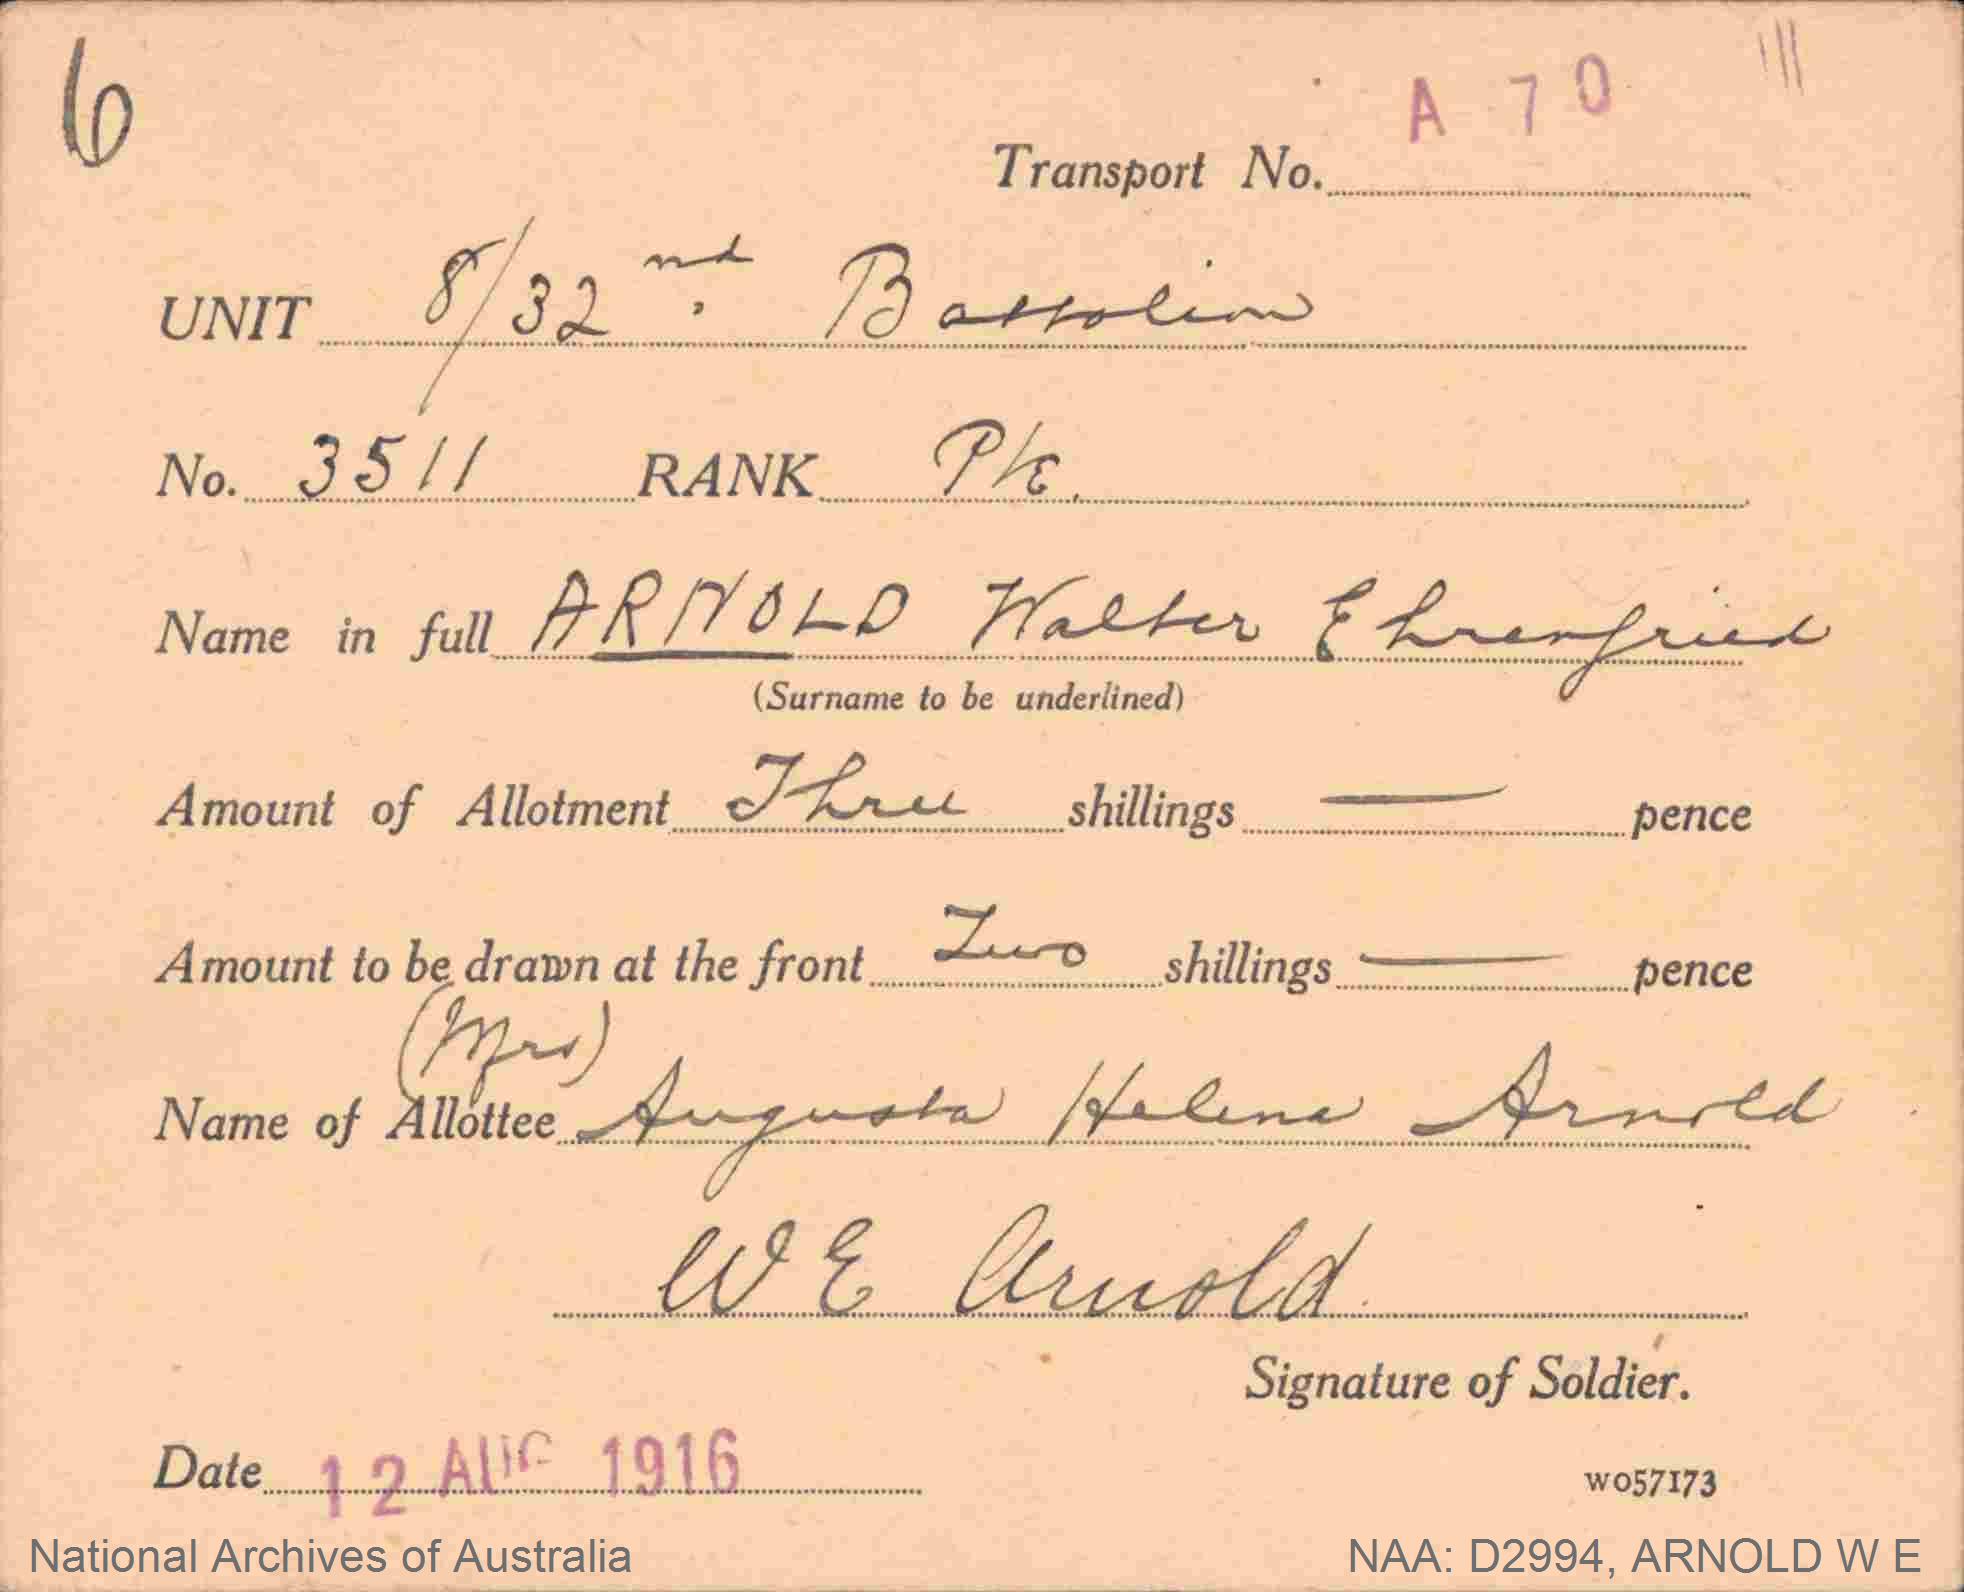 6
A 70
Transport No.
UNIT 8/32nd. Battalion
No. 3511 RANK Pte.
Name in full ARNOLD Walter Ehrenfried
(Surname to be underlined)
Amount of Allotment Three shillings — pence
Amount to be drawn at the front Two shillings — pence
(Mrs)
Name of Allottee Augusta Helena Arnold
W E Arnold
Signature of Soldier.
Date 12 AUG 1916
WO57173
National Archives of Australia NAA: D2994, ARNOLD W E